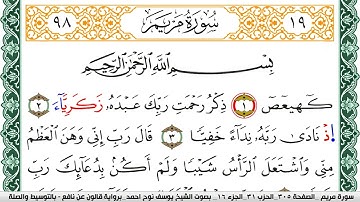 ١٩ سُورَةُ مَرْيَمَ ٩٨
بِسْمِ اللَّهِ الرَّحْمَٰنِ الرَّحِيمِ
كَهيعَصَ ١ ذِكْرُ رَحْمَتِ رَبِّكَ عَبْدَهُۥ زَكَرِيَّآءَ ٢
اِذْ نَادَىٰ رَبَّهُۥ نِدَآءً خَفِيّٗا ٣ قَالَ رَبِّ إِنِّي وَهَنَ اَلْعَظْمُ
مِنِّي وَاشْتَعَلَ اَلرَّأْسُ شَيْبٗا وَلَمْ أَكُنۢ بِدُعَآئِكَ رَبِّ
سورة مريم _ الصفحة ٣٠٥ _ الحزب ٣١ _ الجزء ١٦ _ بصوت الشيخ يوسف نوح احمد _ برواية قالون عن نافع - بالتوسيط والصلة